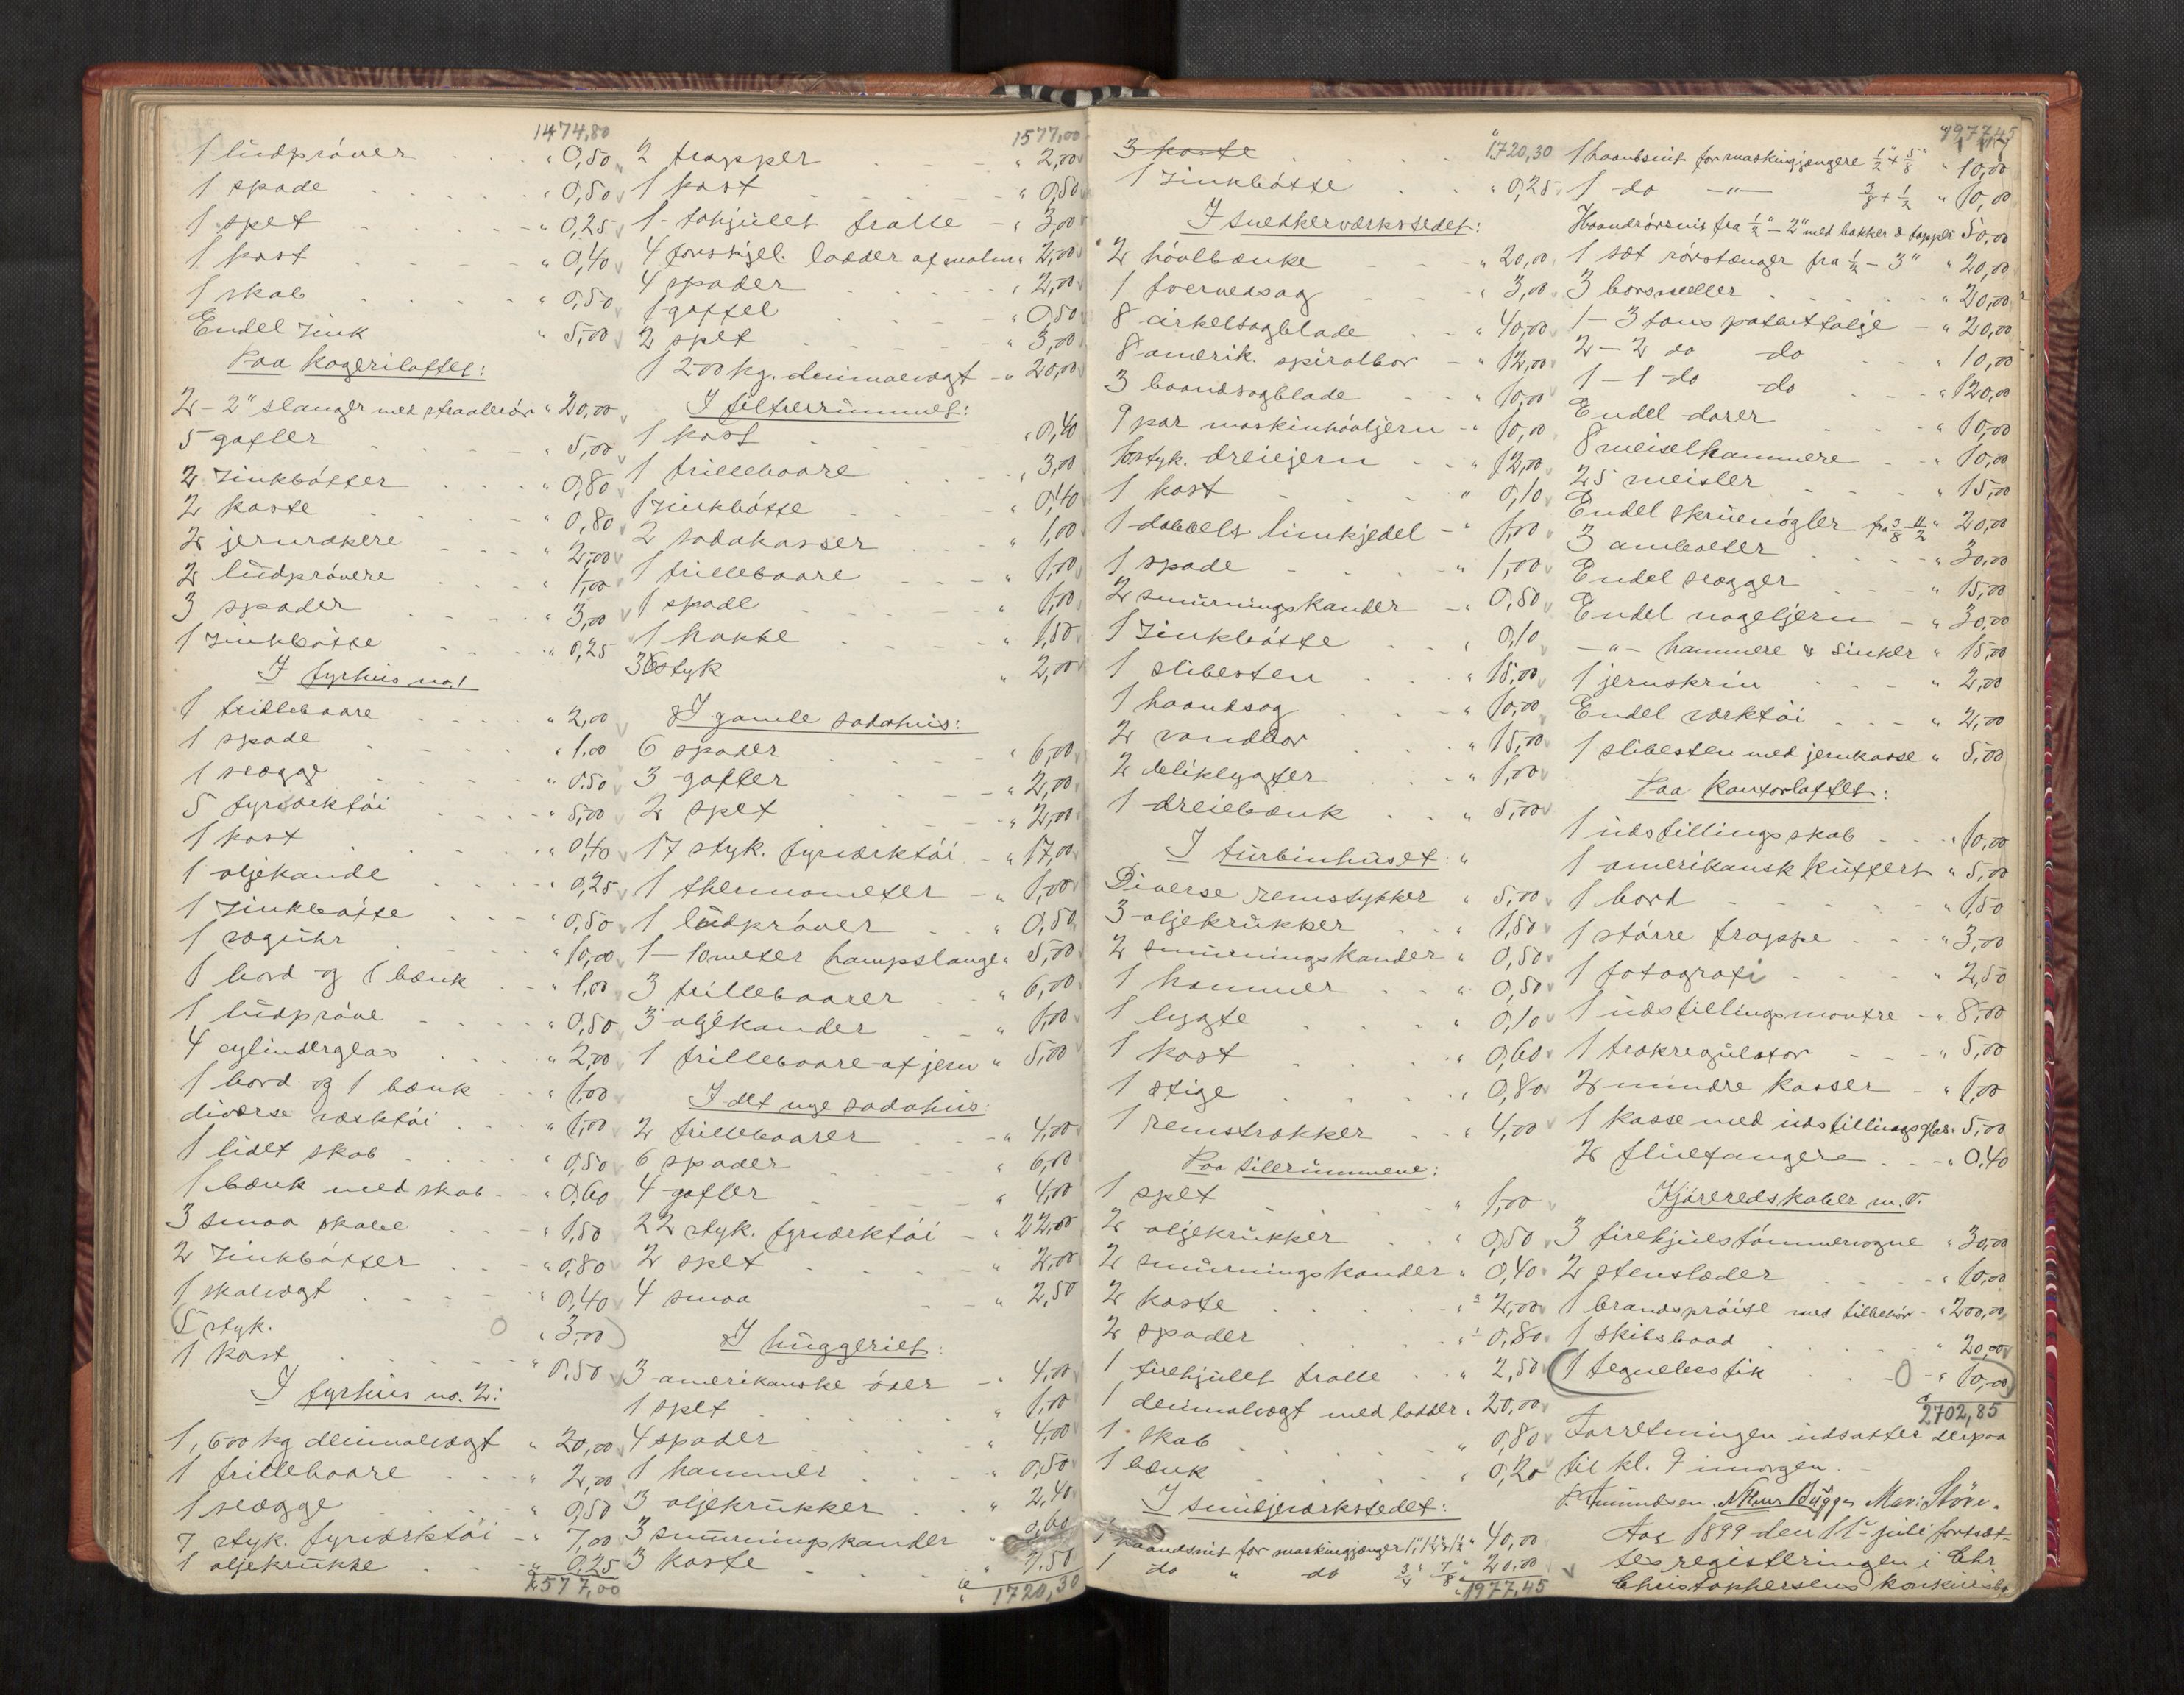 1474,80
1 lüdprøver " 0,50
1 spade " 0,50
1 spet " 0,25
1 kost " 0,40
1 skab " 0,50
Endel zink " 5,00
Paa kogeriloftet:
2 - 2" slanger med straalerør " 20,00
5 gafler " 5,00
2 zinkbøtter " 0,80
2 koste " 0,80
2 jernrakere " 2,00
2 lüdprøvere " 1,00
3 spader " 3,00
1 zinkbøtte " 0,25
I fyrhus no. 1
1 trillebaare " 2,00
1 spade " 1,00
1 slægge " 0,50
5 fyrværktøi " 5,00
1 kost " 0,40
1 oljekande " 0,25
1 zinkbøtte " 0,50
1 væguhr " 10,00
1 bord og 1 bænk " 1,00
1 lüdprøve " 0,50
4 cylinderglas " 2,00
1 bord og 1 bænk " 1,00
diverse værktøi " 1,00
1 lidet skab " 0,50
1 bænk med skab " 0,60
3 smaa skabe " 1,50
2 zinkbøtter " 0,80
1 skalvægt " 0,40
5 styk. " 3,00
1 kost " 0,50
I fyrhus no. 2:
1, 600 kg decimalvægt " 20,00
1 trillebaare " 2,00
1 slægge " 0,50
7 styk. fyrværktøi " 7,00
1 oljekrukke " 0,25
1577,00
1577,00
2 trapper " 2,00
1 kost " 0,50
1 tohjulet tralle " 3,00
4 forskjel. lodder af malm " 2,00
4 spader " 2,00
1 gaffel " 0,50
2 spet " 3,00
1 200 kg. decimalvægt " 20,00
I filterrummet:
1 kost " 0,40
1 trillebaare " 3,00
1 zinkbøtte " 0,40
2 sodakasser " 1,00
1 trillebaare " 1,00
1 spade " 1,00
1 hakke " 1,50
36 styk " 2,00
I gamle sodahus:
6 spader " 6,00
3 gafler " 2,00
2 spet " 2,00
17 styk. fyrværktøi " 17,00
1 thermometer " 1,00
1 lüdprøver " 0,50
1 - 10 meter hampslange " 5,00
3 trillebaarer " 6,00
3 oljekander " 1,00
1 trillebaare af jern " 5,00
I det nye sodahus
2 trillebaarer " 4,00
6 spader " 6,00
4 gafler " 4,00
22 styk. fyrværktøi " 22,00
2 spet " 2,00
4 smaa " 2,50
I huggeriet:
3 amerikanske øxer " 4,00
1 spet " 1,00
4 spader " 4,00
1 hammer " 0,50
3 oljekrukker " 2,40
3 smurningskander " 0,60
3 koste
1720,30
3 koste " 1720,30
1 zinkbøtte " 0,25
I snedkerværkstedet:
2 høvlbænke " 20,00
1 tvervedsag " 3,00
8 cirkelsagblade " 40,00
8 amerik. spiralbor " 12,00
3 baandsagblade " 10,00
9 par maskinhøvljern " 10,00
16 styk. dreiejern " 12,00
1 kost " 0,10
1 dobbelt limkjedel " 1,00
1 spade " 1,00
2 smurningskander " 0,50
1 zinkbøtte " 0,10
1 slibesten " 15,00
1 haandsag " 10,00
2 vandbor " 15,00
2 bliklygter " 1,00
1 dreiebænk " 5,00
I turbinhuset:
Diverse remstykker " 5,00
3 oljekrukker " 1,50
2 smurningskander " 0,50
1 hammer " 0,50
1 lygte " 0,10
1 kost " 0,60
1 stige " 0,80
1 remstrækker " 4,00
Paa silerummene:
1 spet " 1,00
2 oljekrukker " 0,50
2 smurningskander " 0,40
2 koste " 2,00
2 spader " 0,80
1 firehjulet tralle " 2,50
1 decimalvægt med lodder " 20,00
1 skab " 0,80
1 bænk " 0,20
I smidjeværkstedet:
1 haandsnit for maskingjænger 40,00
1 do " do 3/4" 7/8" " 20,00
" 1977,45
1977,45
1 haandsnit for maskingjængere 1/2 + 5/8" " 10,00
1 do - " - 3/8 + 1/2 " 10,00
Haandrørsnit fra 1/2" - 2" med bakker & tapper 50,00
1 sæt rørstænger fra 1/2 - 3" " 20,00
3 borsneller " 20,00
1 - 3 tons patenttalje " 20,00
2 - 2 do do " 10,00
1 - 1 do do " 120,00
Endel dorer " 10,00
8 meiselhammere " 10,00
25 meisler " 15,00
Endel skruenøgler " 20,00
3 ambolter " 30,00
Endel slægger " 15,00
Endel nageljern " 30,00
- " - hammere & sinker " 15,00
1 jernskrin " 2,00
Endel værktøi " 2,00
1 slibesten med jernkasse " 5,00
Paa Kontorloftet:
1 udstillingsskab " 10,00
1 amerikansk kuffert " 5,00
1 bord " 1,50
1 større trappe " 3,00
1 fotografi " 2,50
1 udstillingsmontre " 8,00
1 trækregulator " 5,00
2 mindre kasser " 1,00
1 kasse med udstillingsglas " 5,00
2 fluefangere " 0,40
Kjøreredskaber m.v.
3 firehjuls tømmervogne " 30,00
2 stenslæder " 10,00
1 brandsprøite med tilbehør " 200,00
1 skibsbaad 20,00
1 tegnebestik " 10,00
2702,85
Forretningen udsattes derpaa
til kl. 9 imorgen.
Amundsen. Bugge Støre.
Aar 1899 den 11te juli fortsat-
tes registreringen i Chr
Christophersens konkursbo